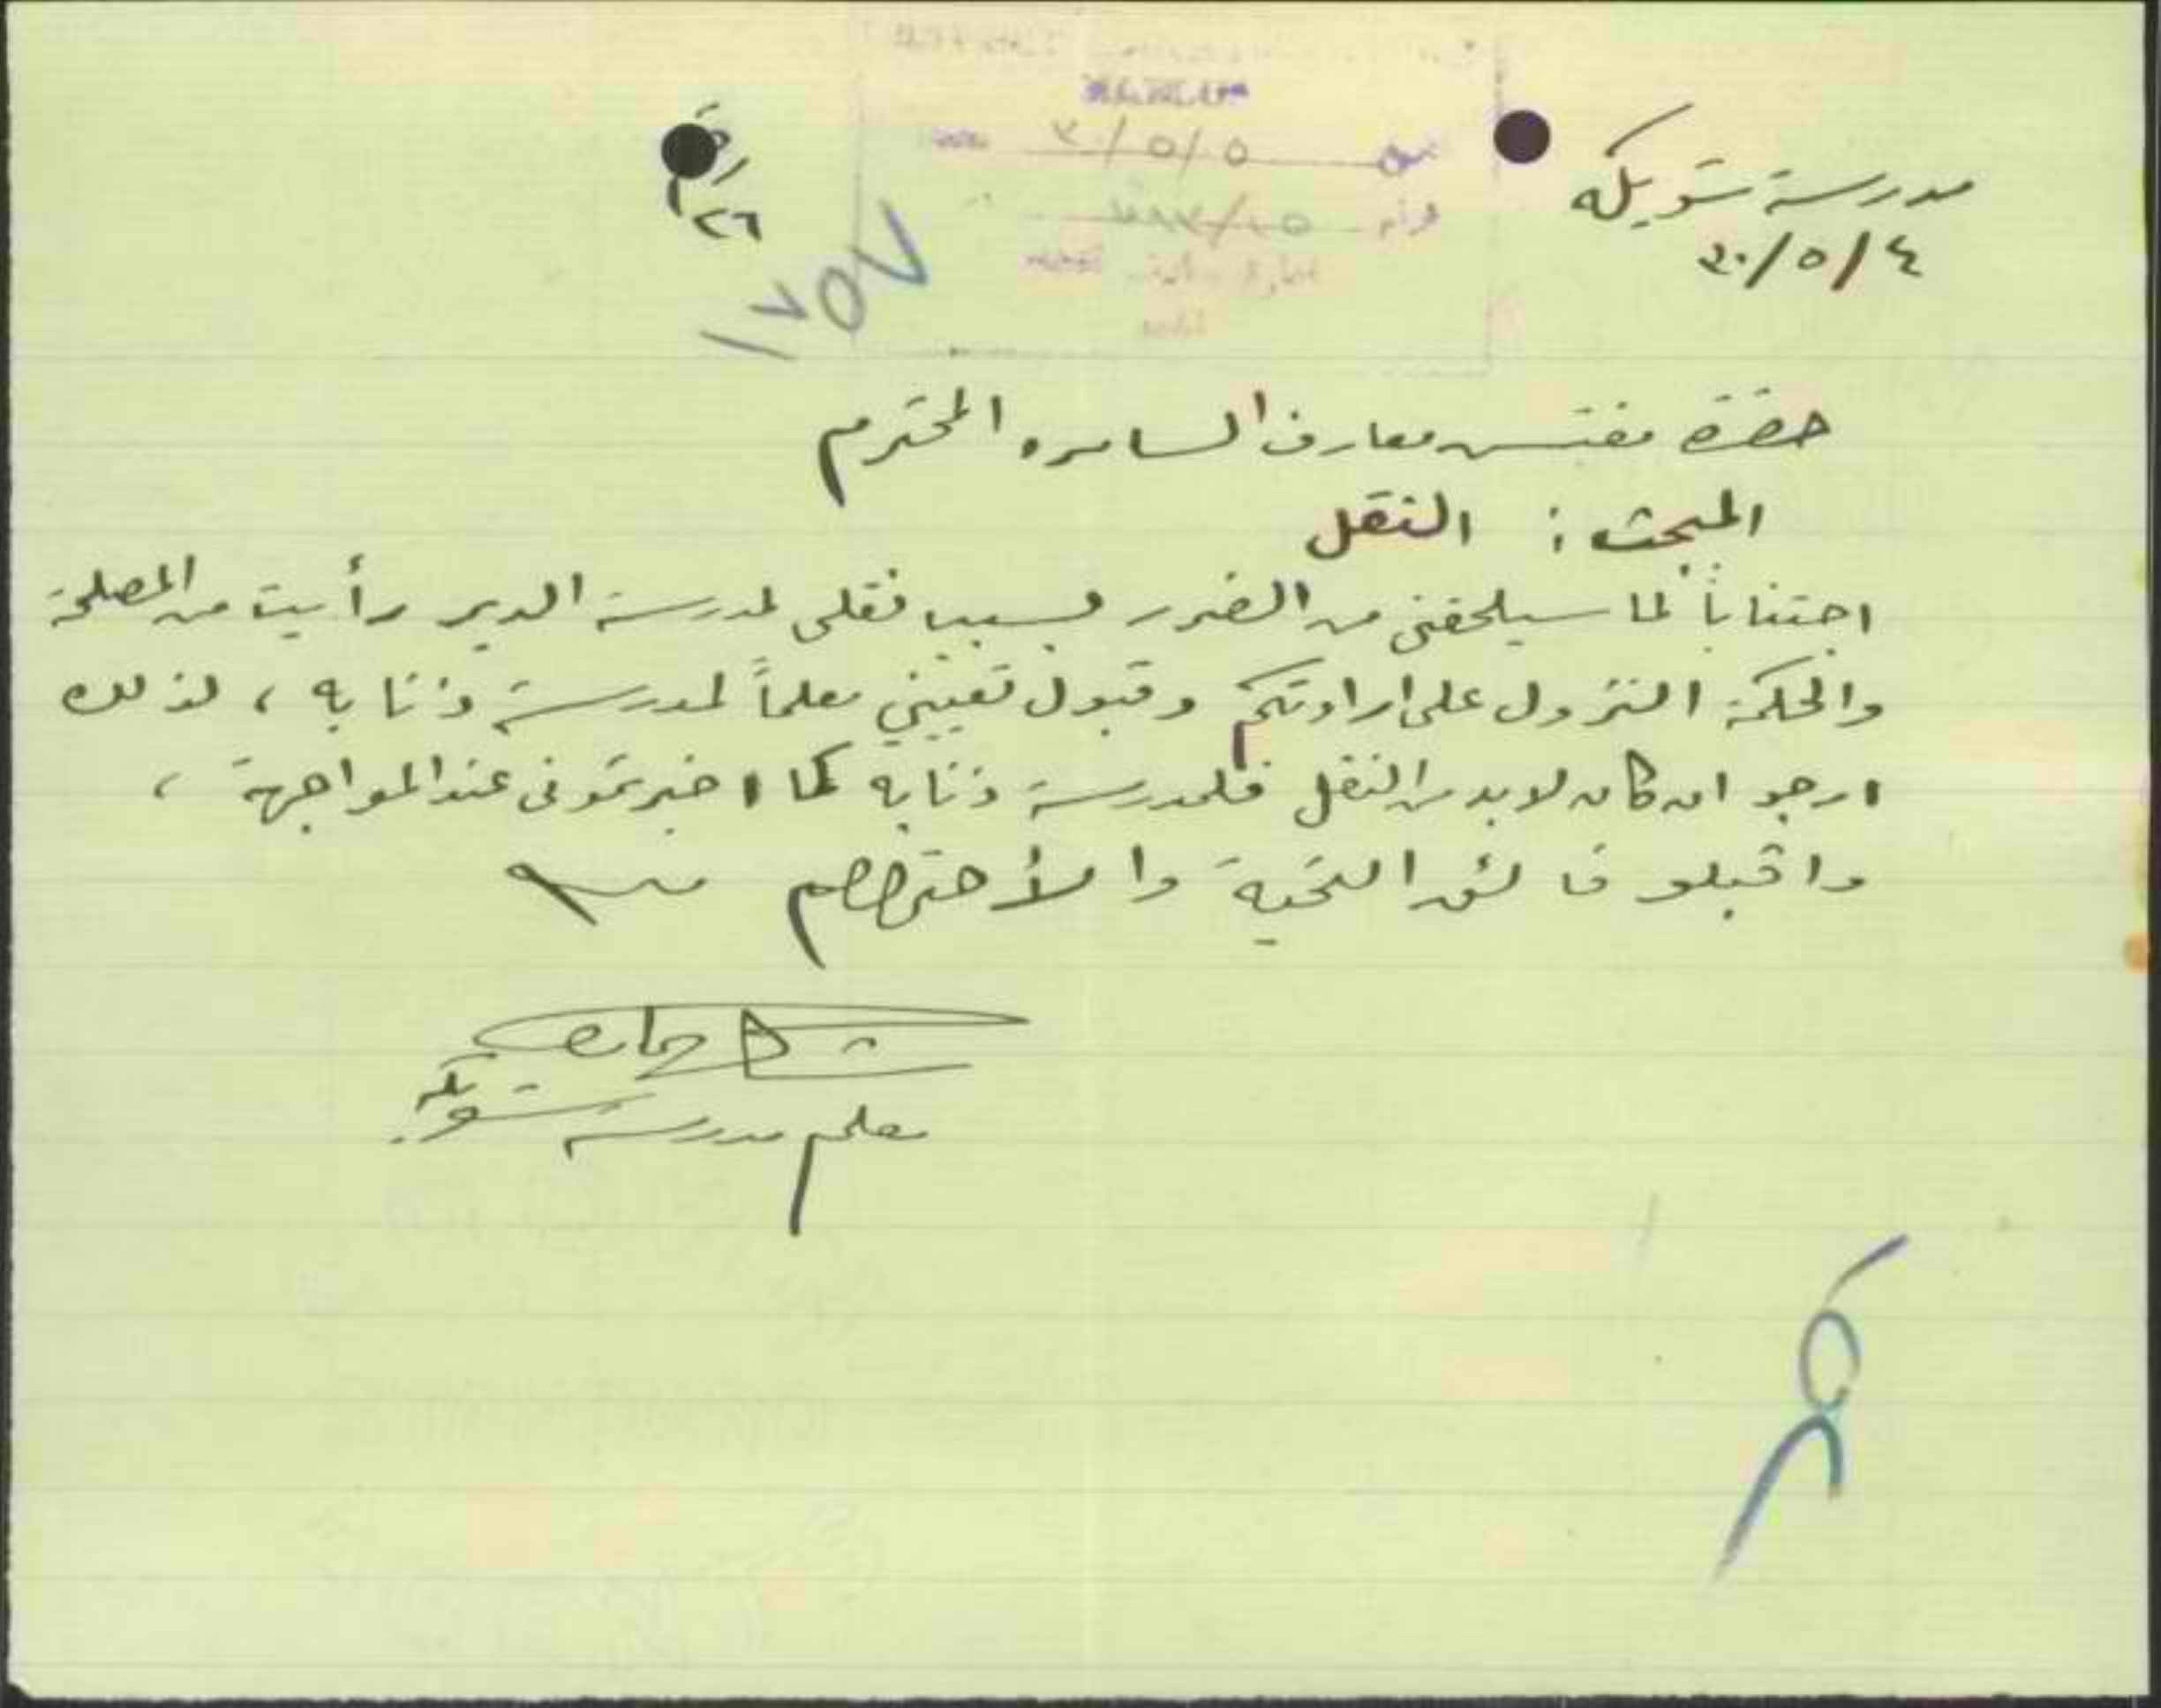 مدرسة شويكه
٤/٥/٣٠
٢٦
١٧٥٧
حضرة مفتش معارف السامره المحترم
المبحث : النقل
اجتناباً لما سيلحقني من الضرر بسبب نقلي لمدرسة الدير رأيت من المصلحة
والحكمة النزول على ارادتكم وقبول تعييني معلماً لمدرسة ذنابه ، لذلك
ارجو ان كان لا بد من النقل فلمدرسة ذنابه كما اخبرتموني عند المواجهة ،
واقبلو فائق التحية والأحترام
معلم مدرسة شويكه